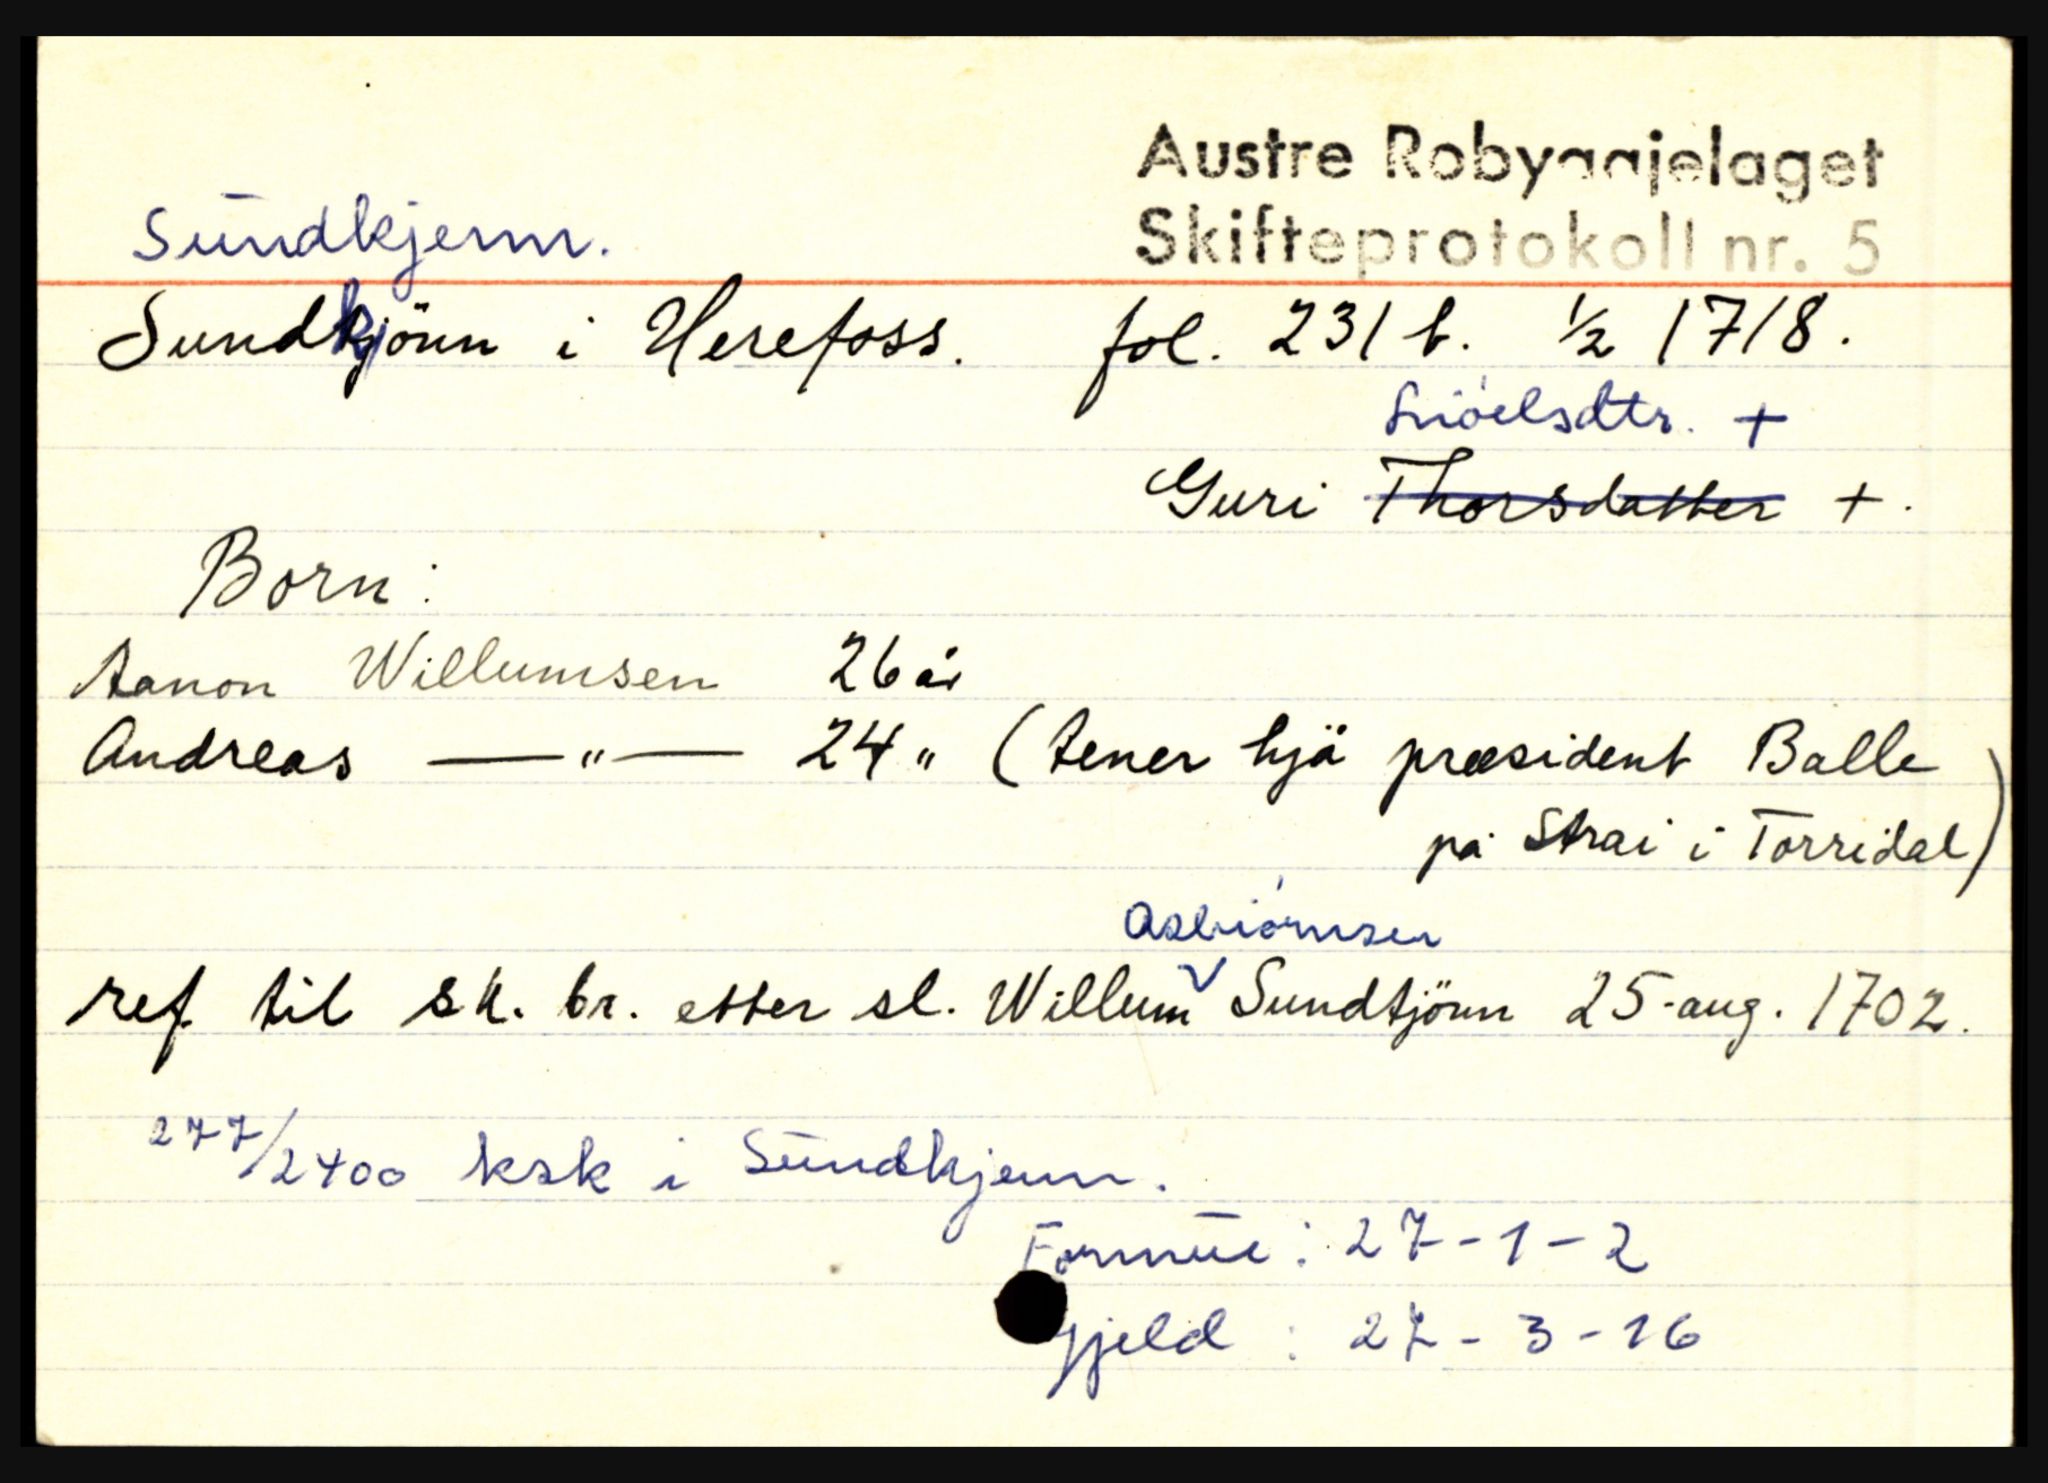 Austre Robyggjelaget
Sundkjenn. Skifteprotokoll nr. 5
Sundkjönn i Herefoss. fol. 231 b. 1/2 1718.
Snióelsdtr. +
Guri Thorsdatter +.
Born:
Aanon Willumsen 26 år
Andreas —"— 24 " (tener hjå præsident Balle
på Strai i Torridal)
Asbiórnsen
ref til sk. br. etter sl. Willum v Sundtjönn 25-aug. 1702.
277/2400 ksk i Sundkjenn.
Formue : 27-1-2
Gjeld : 27-3-16